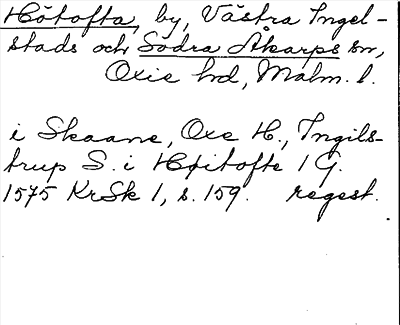 Hötofta, by, Västra Ingel-
stads och Södra Åkarps sn,
Oxie hd, Malm. l.
i Skaane, Oxe H., Ingils-
trup S. i Høitofte 1 G.
1575 KrSk 1, s. 159. regest.